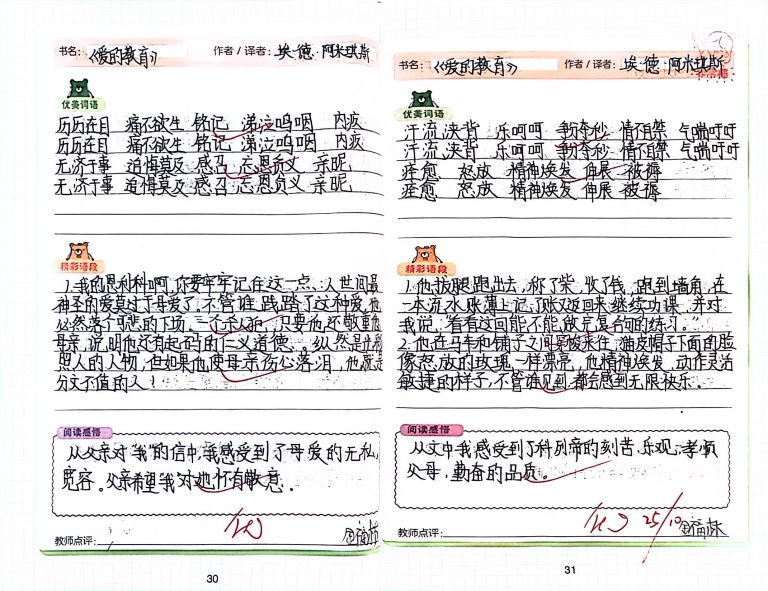 书名：《爱的教育》 作者/译者：埃·德·阿米琪斯
优美词语
历历在目 痛不欲生 铭记 涕泣呜咽 内疚
历历在目 痛不欲生 铭记 涕泣呜咽 内疚
无济于事 追悔莫及 感召 忘恩负义 亲昵
无济于事 追悔莫及 感召 忘恩负义 亲昵
精彩语段
1.我的恩利科啊,你要牢牢记住这一点、人世间最
神圣的爱莫过于母爱了,不管谁践踏了这种爱,他
必然落个可悲的下场。一个杀人犯,只要他还敬重他
母亲,说明他还有起码的仁义道德。纵然是
照人的人物,但如果他使母亲伤心落泪,他就是
分文不值的人!
阅读感悟
从父亲对“我”的信中,我感受到了母爱的无私,
宽容。父亲希望我对她怀有敬意.
教师点评: 优
30
书名：《爱的教育》 作者/译者：埃·德·阿米琪斯
优美词语
汗流浃背 乐呵呵 争分夺秒 情不自禁 气喘吁吁
汗流浃背 乐呵呵 争分夺秒 情不自禁 气喘吁吁
痊愈 怒放 精神焕发 伸展 被褥
痊愈 怒放 精神焕发 伸展 被褥
精彩语段
1.他拔腿跑出去,称了柴,收了钱,跑到墙角,在
一本流水账薄上记了账又返回来继续功课,并对
我说,“看看这回能不能做完复合句的练习。”
2.他在马车和铺子之间穿梭来往,猫皮帽子下面的脸
像怒放的玫瑰一样漂亮,他精神焕发,动作灵活
敏捷的样子,不管谁见到都会感到无限快乐.
阅读感悟
从文中我感受到了科列帝的刻苦,乐观,孝顺
父母,勤奋的品质。
教师点评: 优 25/10
31